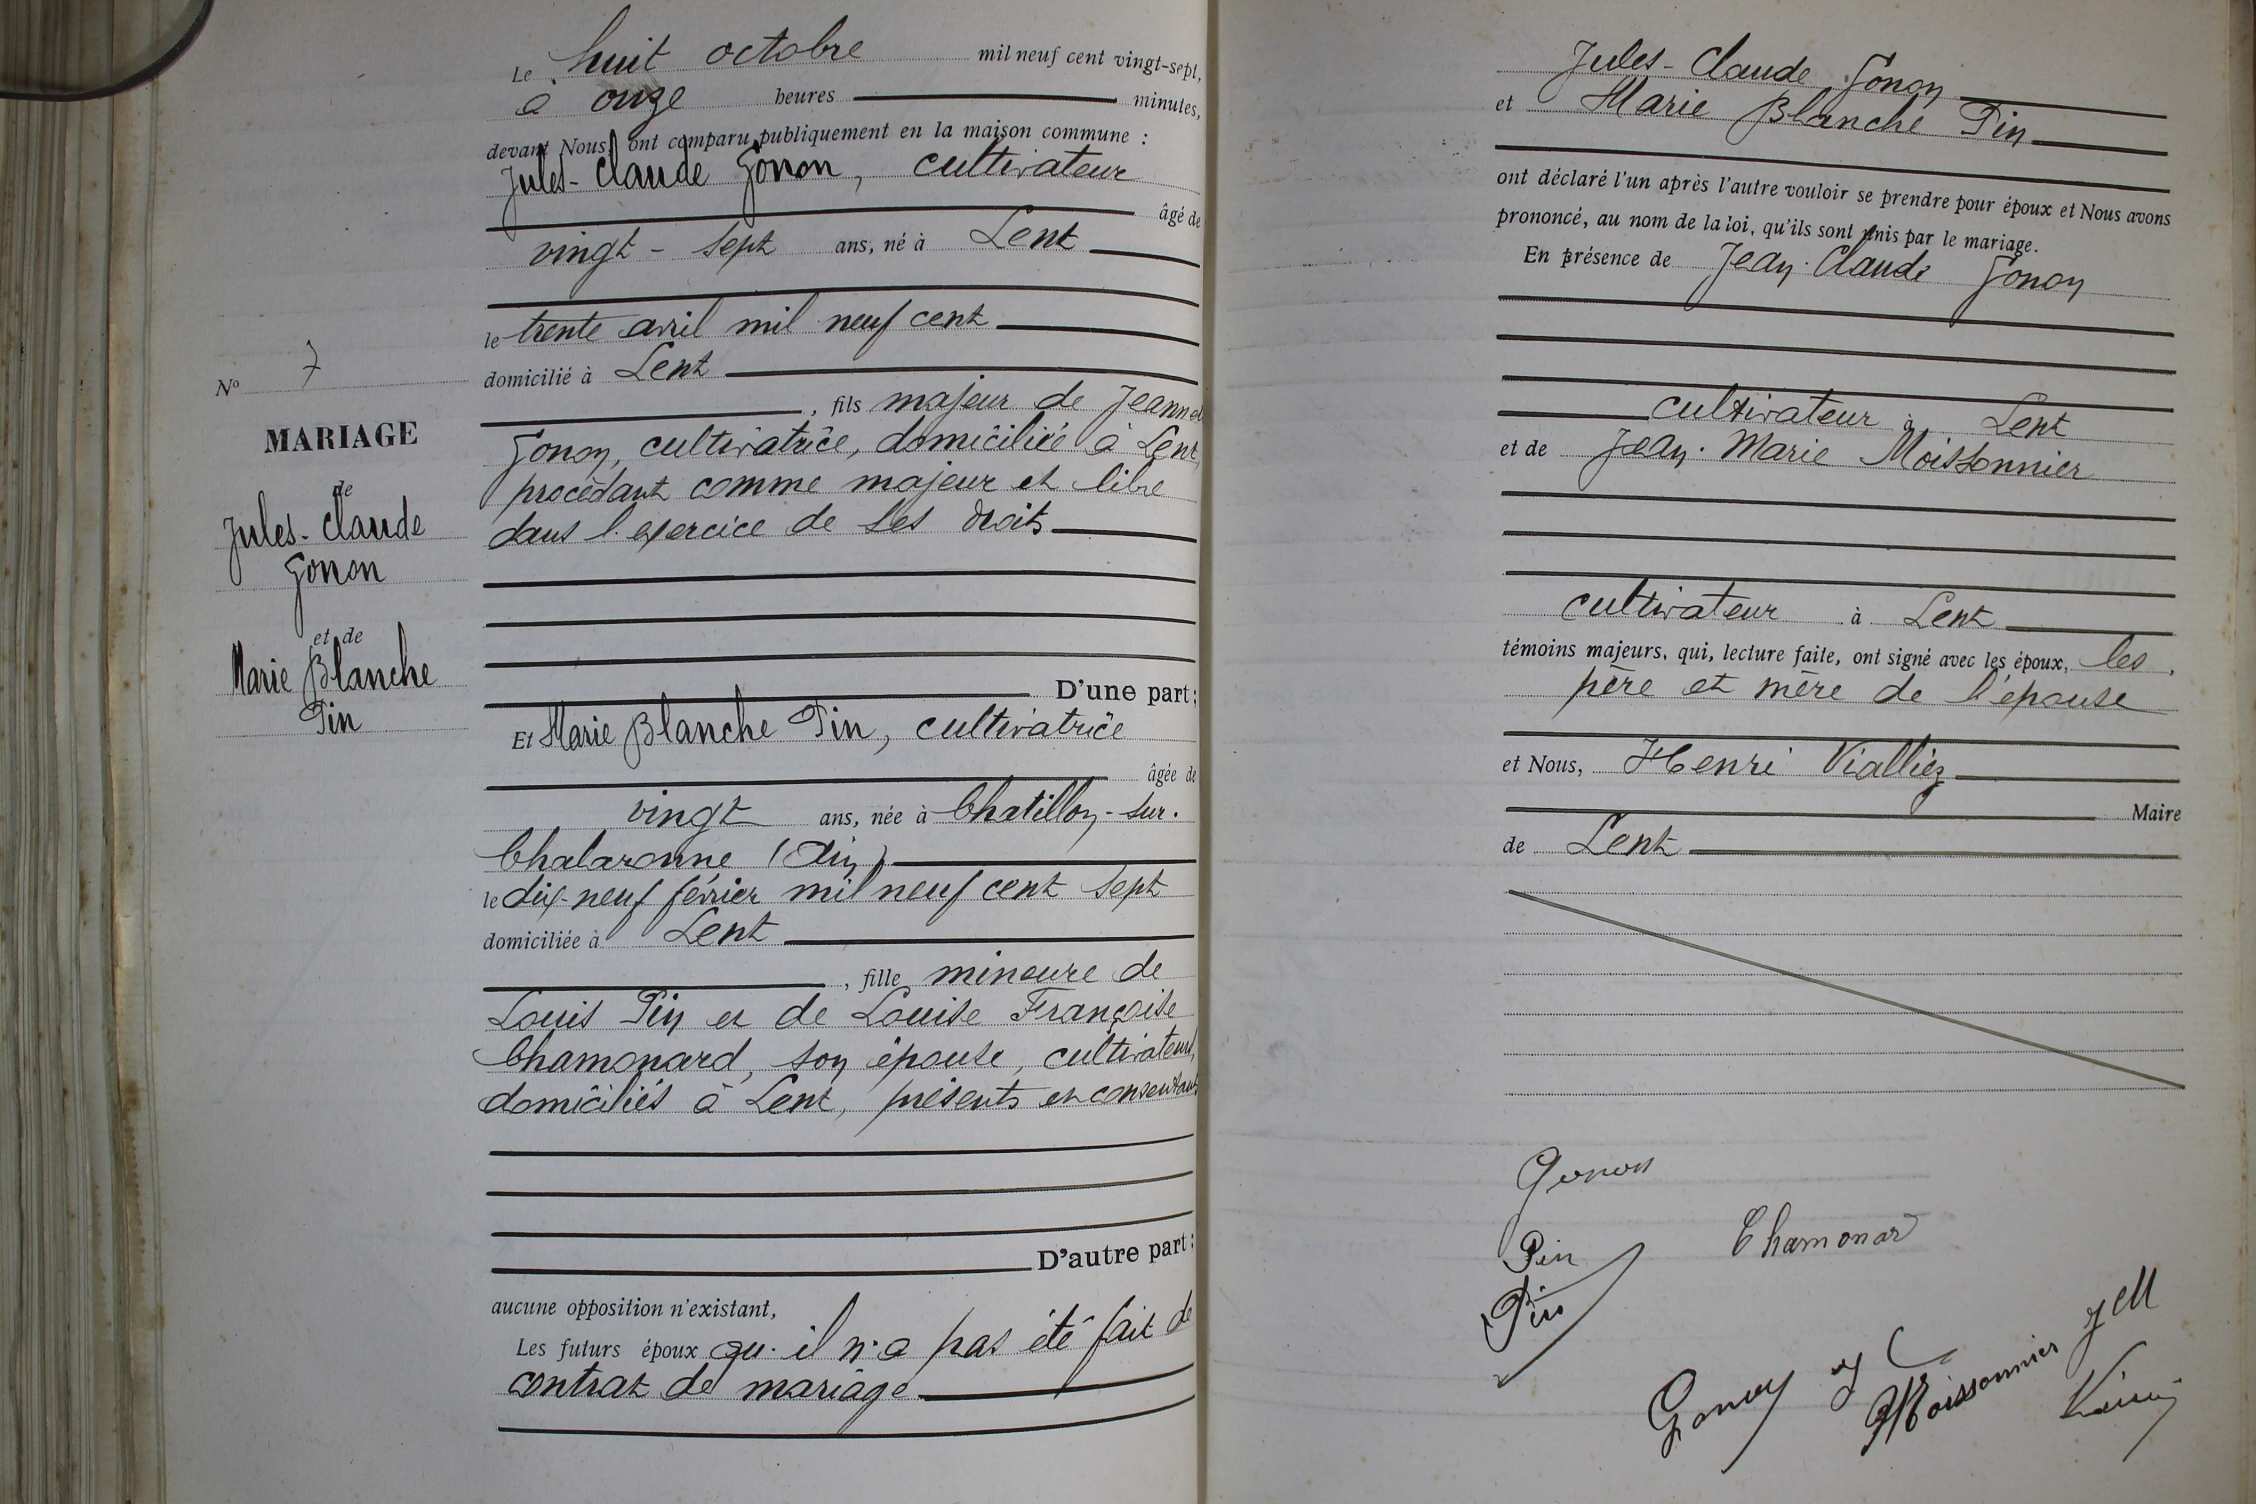 Le huit octobre mil neuf cent vingt-sept,
à onze heures minutes,
devant Nous ont comparu publiquement en la maison commune :
Jules-Claude Gonon, cultivateur
âgé de
vingt-sept ans, né à Lent
le trente avril mil neuf cent
domicilié à Lent
, fils majeur de Jeannel
Gonon, cultivatrice, domiciliée à Lent,
procédant comme majeur et libre
dans l'exercice de ses droits
D'une part ;
Et Marie Blanche Pin, cultivatrice
âgée de
vingt ans, née à Chatillon-sur-
Chalaronne (Ain)
le dix-neuf février mil neuf cent sept
domiciliée à Lent
, fille mineure de
Louis Pin et de Louise Françoise
Chamonard, son épouse, cultivateurs,
domiciliés à Lent, présents et consentants
D'autre part ;
aucune opposition n'existant,
Les futurs époux qu'il n'a pas été fait de
contrat de mariage
No 7
MARIAGE
de
Jules-Claude
Gonon
et de
Marie Blanche
Pin
Jules-Claude Gonon
et Marie Blanche Pin
ont déclaré l'un après l'autre vouloir se prendre pour époux et Nous avons
prononcé, au nom de la loi, qu'ils sont unis par le mariage.
En présence de Jean-Claude Gonon
cultivateur à Lent
et de Jean-Marie Moissonnier
cultivateur à Lent
témoins majeurs, qui, lecture faite, ont signé avec les époux, les
père et mère de l'épouse
et Nous, Henri Vialliez
Maire
de Lent
Gonon
Pin Chamonar
Pin
Gonon J C
Moissonnier J M